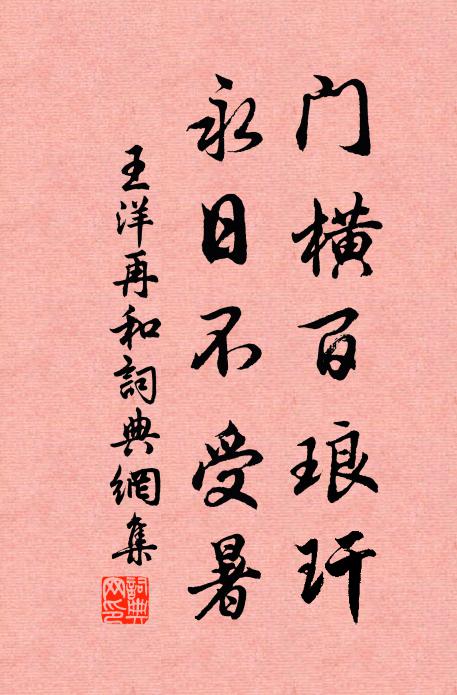 门橫百琅玕
永日不受暑
王洋再和詞典網集
詞典网印